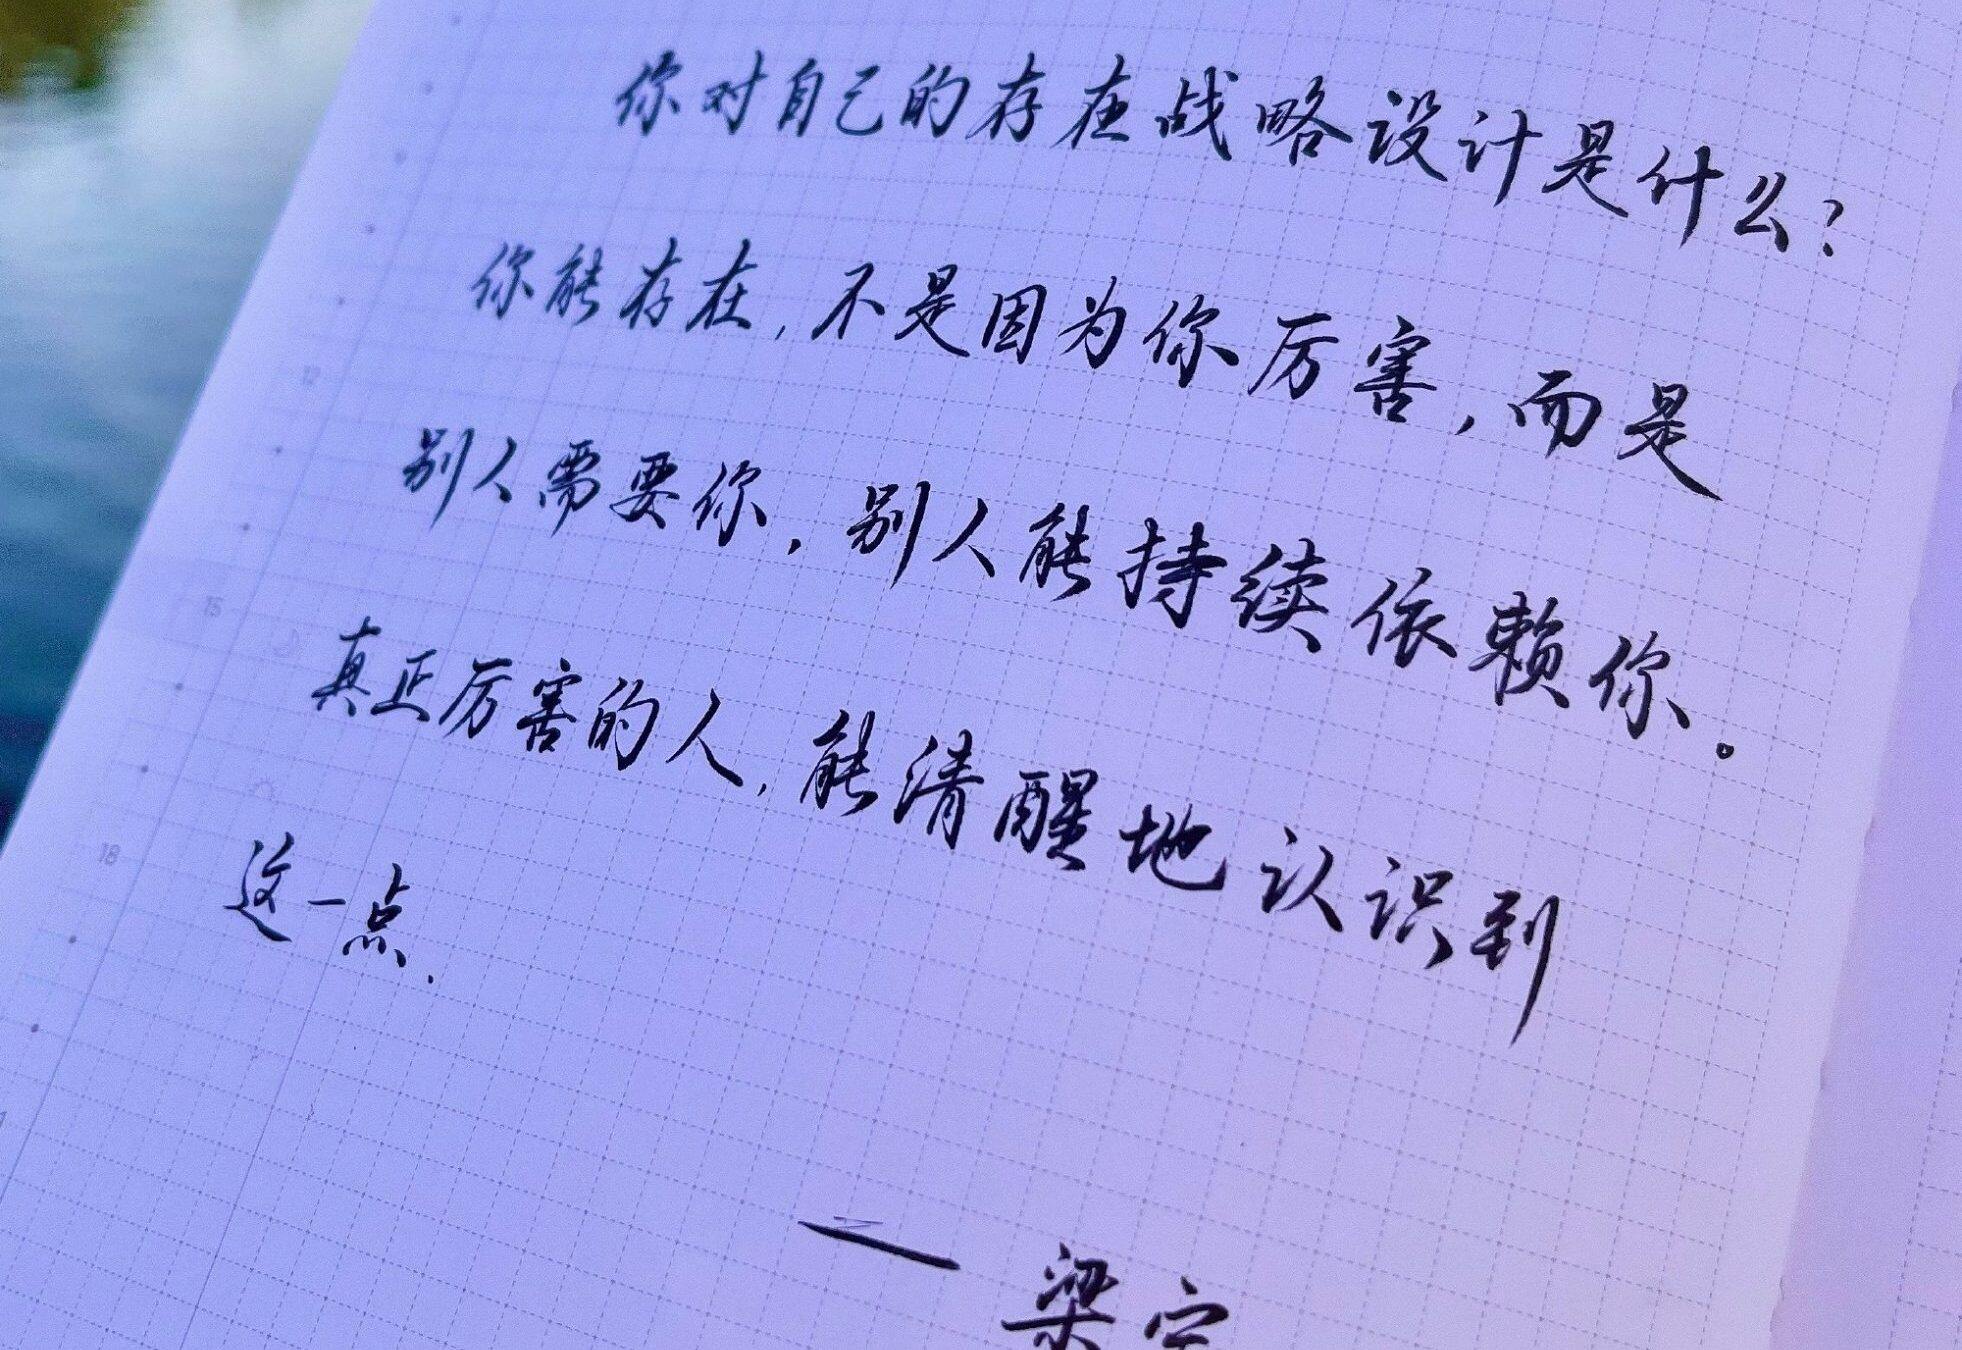 你对自己的存在战略设计是什么?
你能存在,不是因为你厉害,而是
别人需要你,别人能持续依赖你。
真正厉害的人,能清醒地认识到
这一点.
12
15
18
— 梁宁